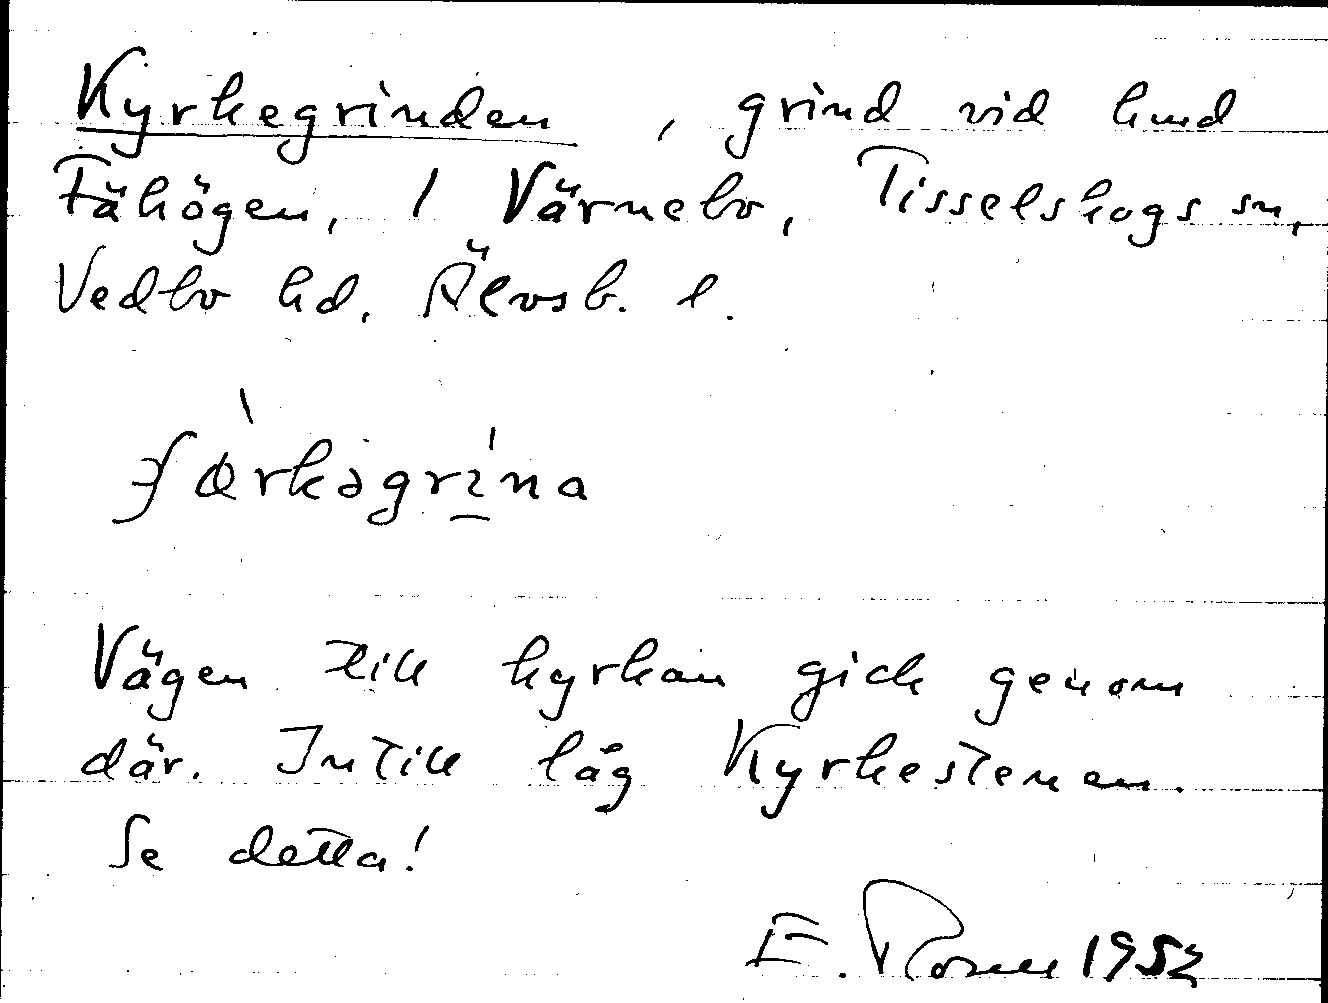 Kyrkegrinden, grind vid hmd
Fähögen, 1 Värnebo, Tisselskogs sn,
Vedbo hd. Älvsb. l.
Vägen till kyrkan gick genom
där. Intill låg Kyrkestenen.
Se detta!
E. 1952